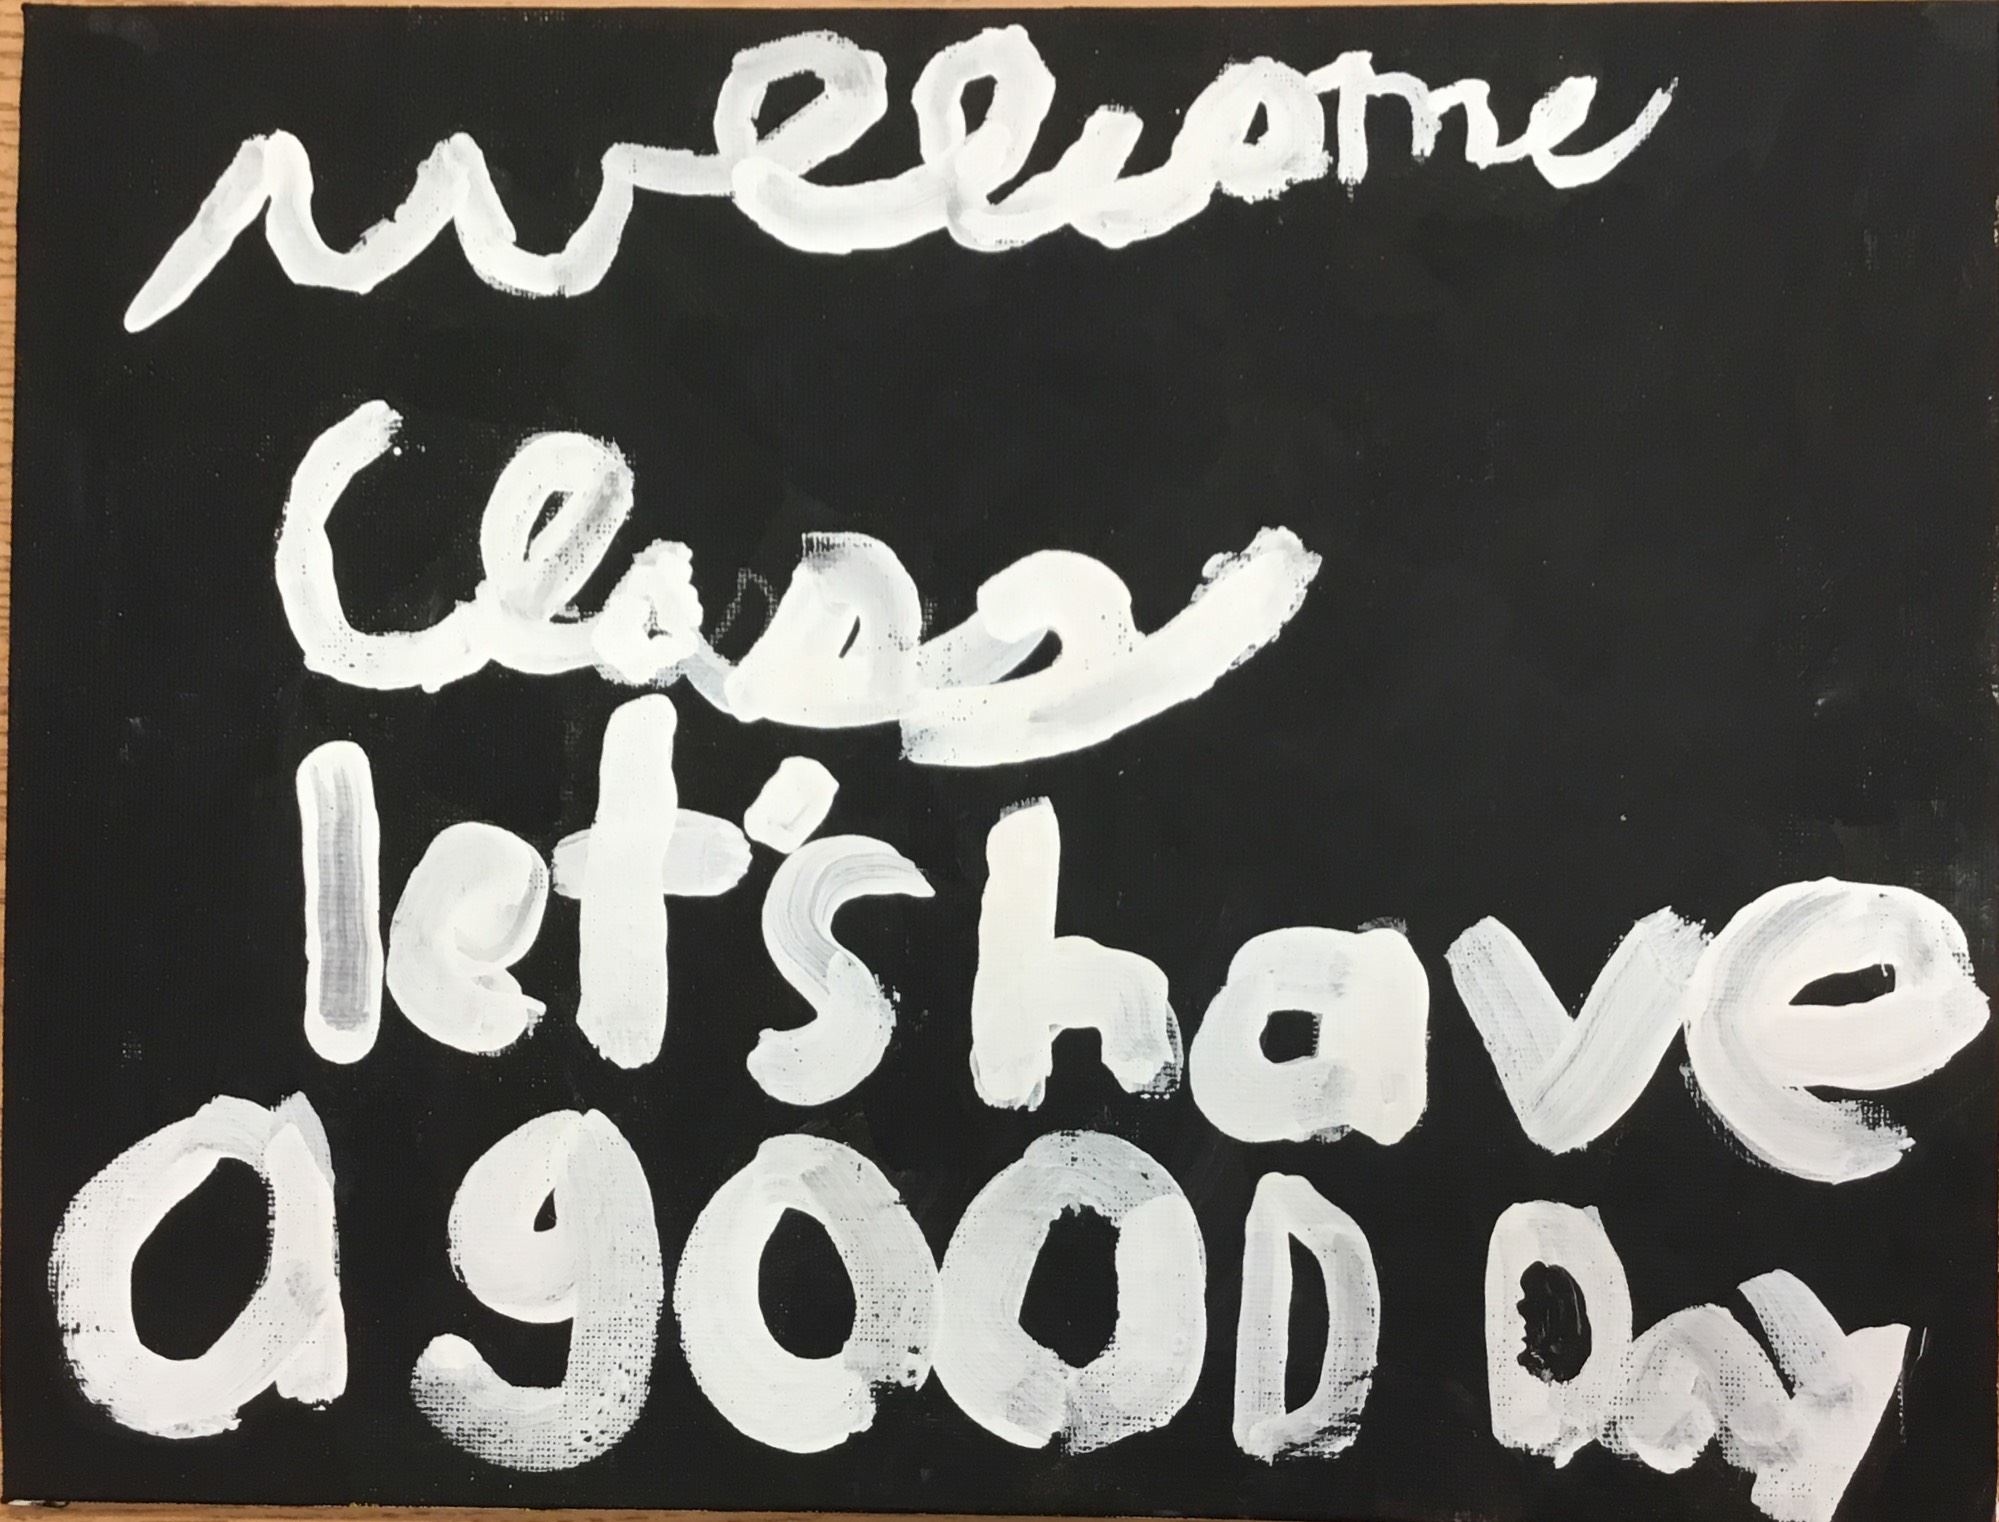 welcome
Class
let's have
a gooD Day